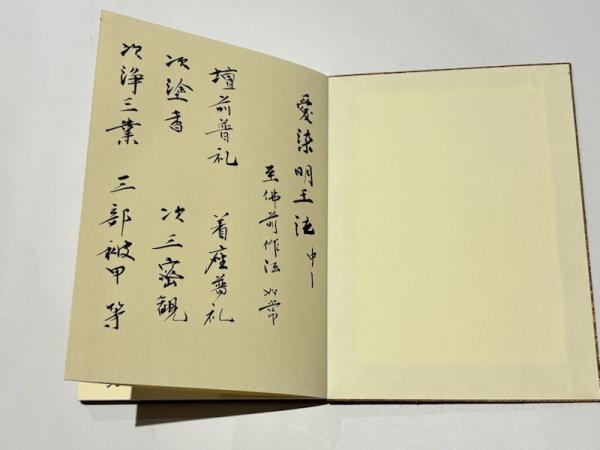 愛染明王法 中下
至佛前作法如常
壇前普礼 着座普礼
次塗香 次三密観
次浄三業 三部被甲等